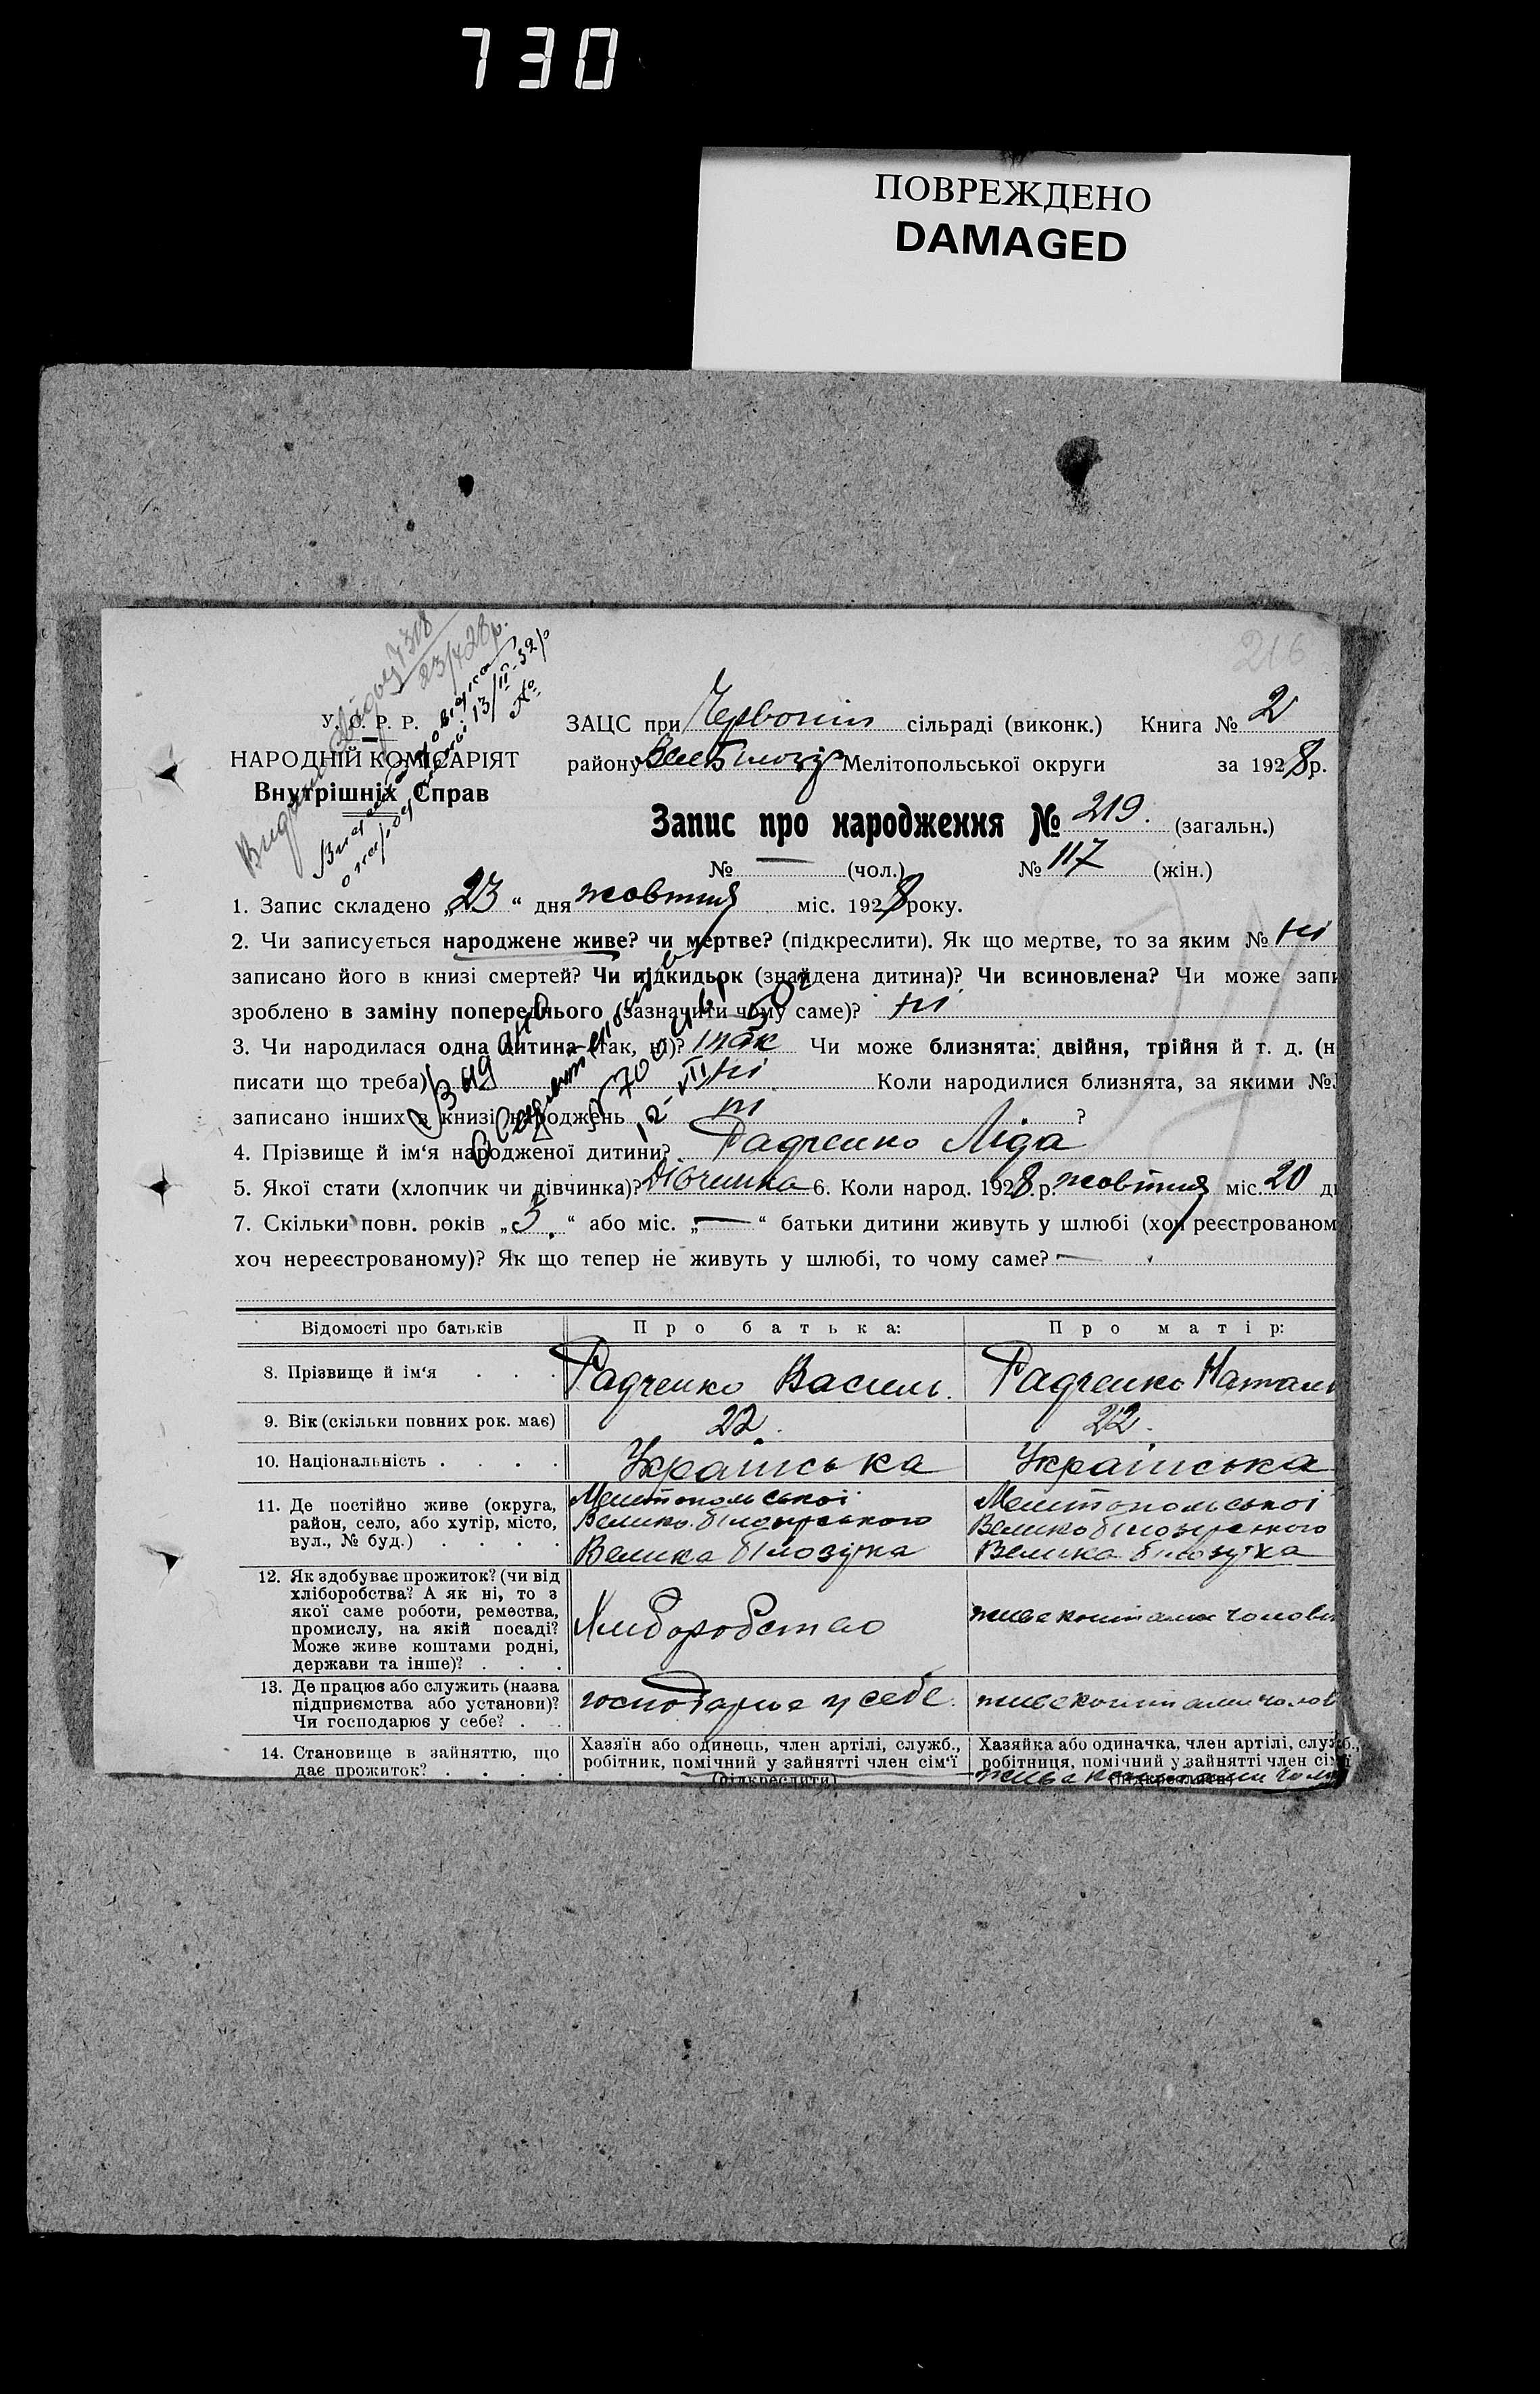 730
ПОВРЕЖДЕНО
DAMAGED
216
У. С. Р. Р.
НАРОДНІЙ КОМІСАРІЯТ
Внутрішніх Справ
23/X 28 р.
13/II-32 р
№
ЗАЦС при Червоній сільраді (виконк.) Книга № 2
району Мелітопольської округи за 1928 р.
Запис про народження № 219. (загальн.)
№ — (чол.) № 117 (жін.)
1. Запис складено „23“ дня жовтня міс. 1928 року.
2. Чи записується народжене живе? чи мертве? (підкреслити). Як що мертве, то за яким № ні
записано його в книзі смертей? Чи підкидьок (знайдена дитина)? Чи всиновлена? Чи може запи
зроблено в заміну попереднього (зазначити чому саме)? ні
3. Чи народилася одна дитина (так, ні)? так Чи може близнята: двійня, трійня й т. д. (н
писати що треба) ні Коли народилися близнята, за якими №
записано інших в книзі народжень ні ?
4. Прізвище й ім‘я народженої дитини? Радченко Ліда
5. Якої стати (хлопчик чи дівчинка)? Дівчинка 6. Коли народ. 1928 р. жовтня міс. 20 д
7. Скільки повн. років „5“ або міс. „—“ батьки дитини живуть у шлюбі (хоч реєстрованом
хоч нереєстрованому)? Як що тепер не живуть у шлюбі, то чому саме? —
Відомості про батьків Про батька: Про матір:
8. Прізвище й ім‘я . . . Радченко Василь. Радченко Наталі
9. Вік (скільки повних рок. має) 22. 22.
10. Національність . . . . Українська Українська
11. Де постійно живе (округа, Мелітопольської Мелітопольської
район, село, або хутір, місто, Велико-білозірського Велико білозірського
вул., № буд.) . . . . Велика білозірка Велика білозірка
12. Як здобуває прожиток? (чи від
хліборобства? А як ні, то з
якої саме роботи, ремества,
промислу, на якій посаді? Хліборобство живе коштами чолові
Може живе коштами родні,
держави та інше)? . . .
13. Де працює або служить (назва
підприємства або установи)? господарює у себе. живе коштами чолов
Чи господарює у себе? . .
14. Становище в зайняттю, що Хазяїн або одинець, член артілі, служб., Хазяйка або одиначка, член артілі, служб.,
дає прожиток? . . . . робітник, помічний у зайнятті член сім‘ї робітниця, помічний у зайнятті член сім‘ї
(підкреслити) живе коштами чоло